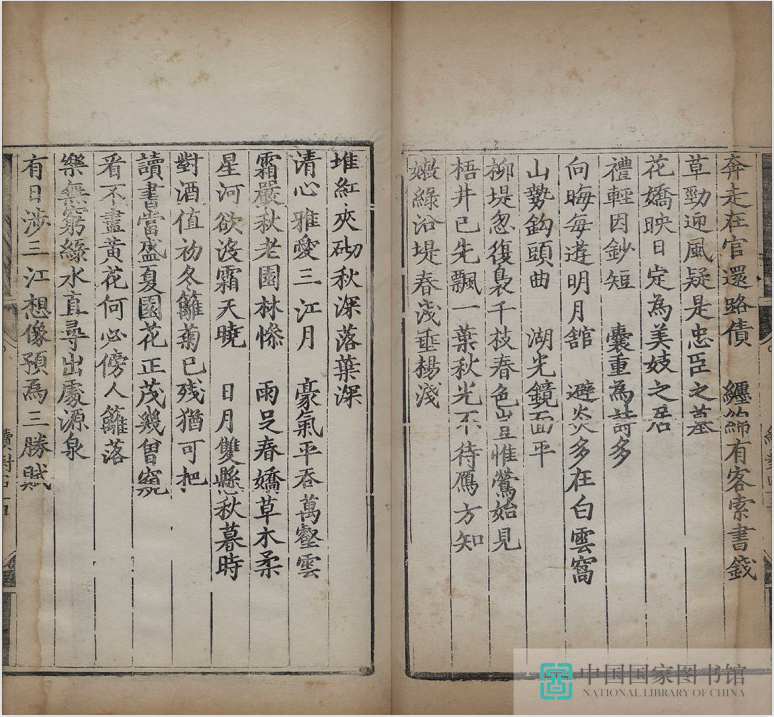 奔走在官還路債　纏綿有客索書錢
草勁迎風疑是忠臣之墓
花嬌映日定為美妓之居
禮輕因鈔短　囊重為詩多
向晦每遊明月館　避炎多在白雲窩
山勢鈎頭曲　湖光鏡面平
柳堤忽復裊千枝春色豈惟鶯始見
梧井已先飄一葉秋光不待鴈方知
嫩綠沿堤春淺垂楊淺
堆紅夾砌秋深落葉深
清心雅愛三江月　豪氣平吞萬壑雲
霜嚴秋老園林慘　雨足春嬌草木柔
星河欲没霜天曉　日月雙懸秋暮時
對酒值初冬籬菊已残猶可把
讀書當盛夏園花正茂幾曽窺
看不盡黄花何必傍人籬落
樂無窮綠水直尋出處源泉
有日涉三江想像預為三勝賦
中国国家图书馆
NATIONAL LIBRARY OF CHINA